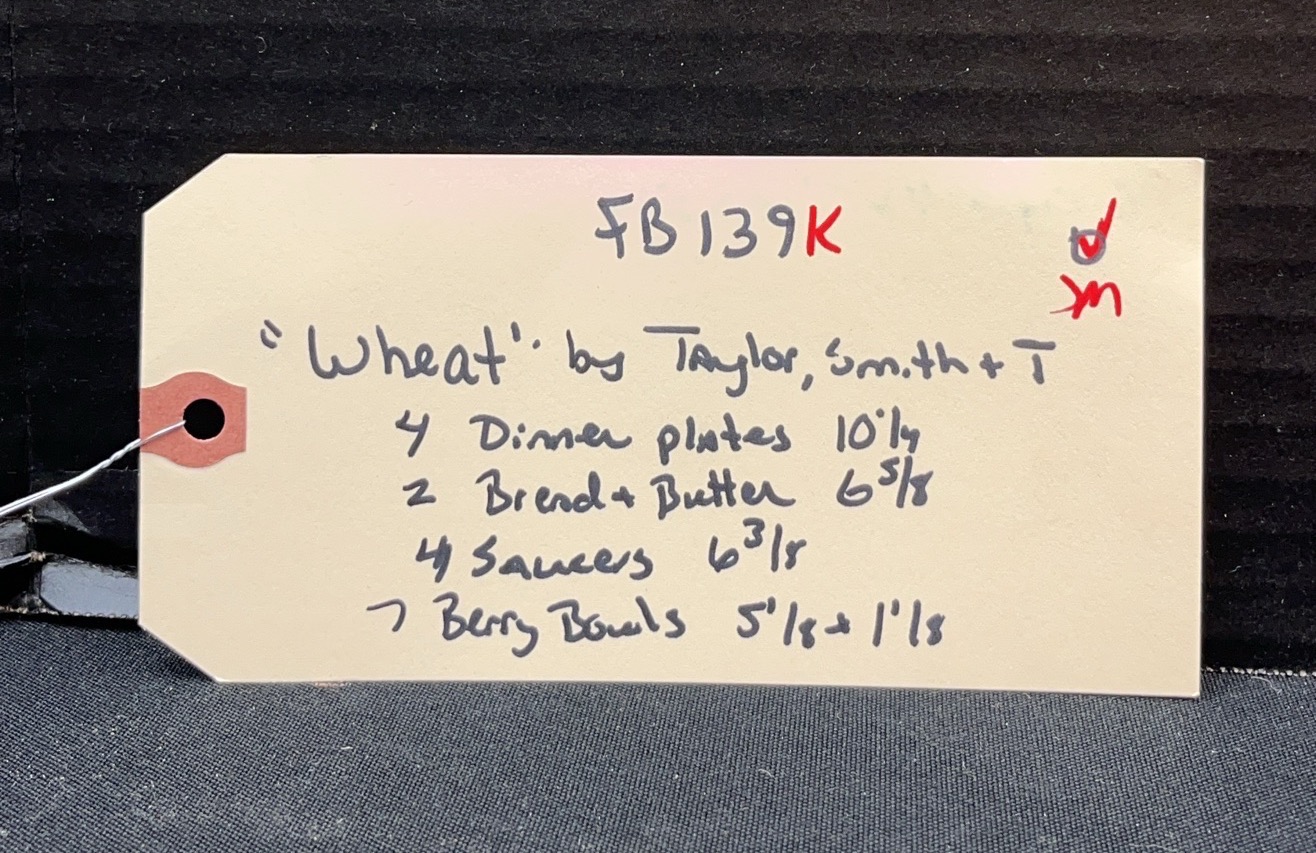 FB139K
"Wheat" by Taylor, Smith + T
4 Dinner plates 10 1/4
2 Bread + Butter 6 5/8
4 Saucers 6 3/8
7 Berry Bowls 5 1/8 + 1 1/8